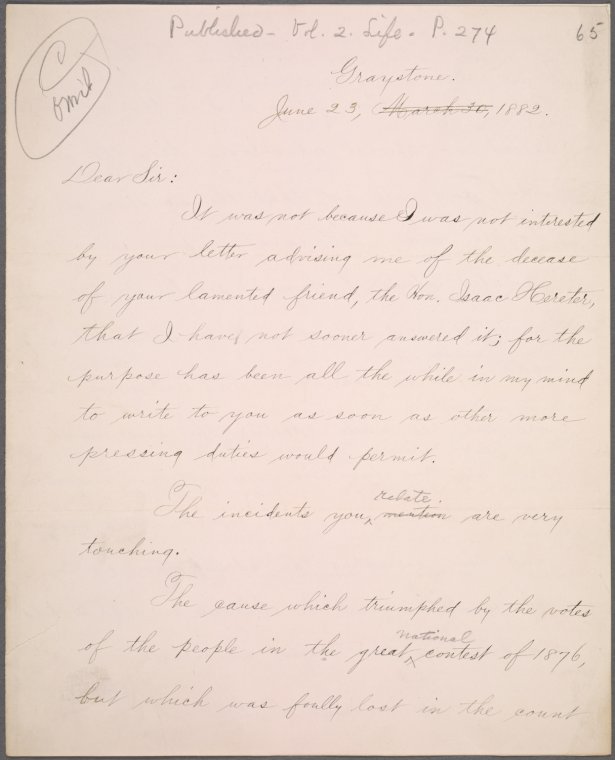 Published - Vol. 2. Life - P. 274
65
Omit
Graystone.
June 23, March 30, 1882.
Dear Sir:
It was not because I was not interested
by your letter advising me of the decease
of your lamented friend, the Hon. Isaac Hereter,
that I have not sooner answered it; for the
purpose has been all the while in my mind
to write to you as soon as other more
pressing duties would permit.
relate.
The incidents you ‸ mention are very
touching.
The cause which triumphed by the votes
national
of the people in the great ‸ contest of 1876,
but which was foully lost in the count